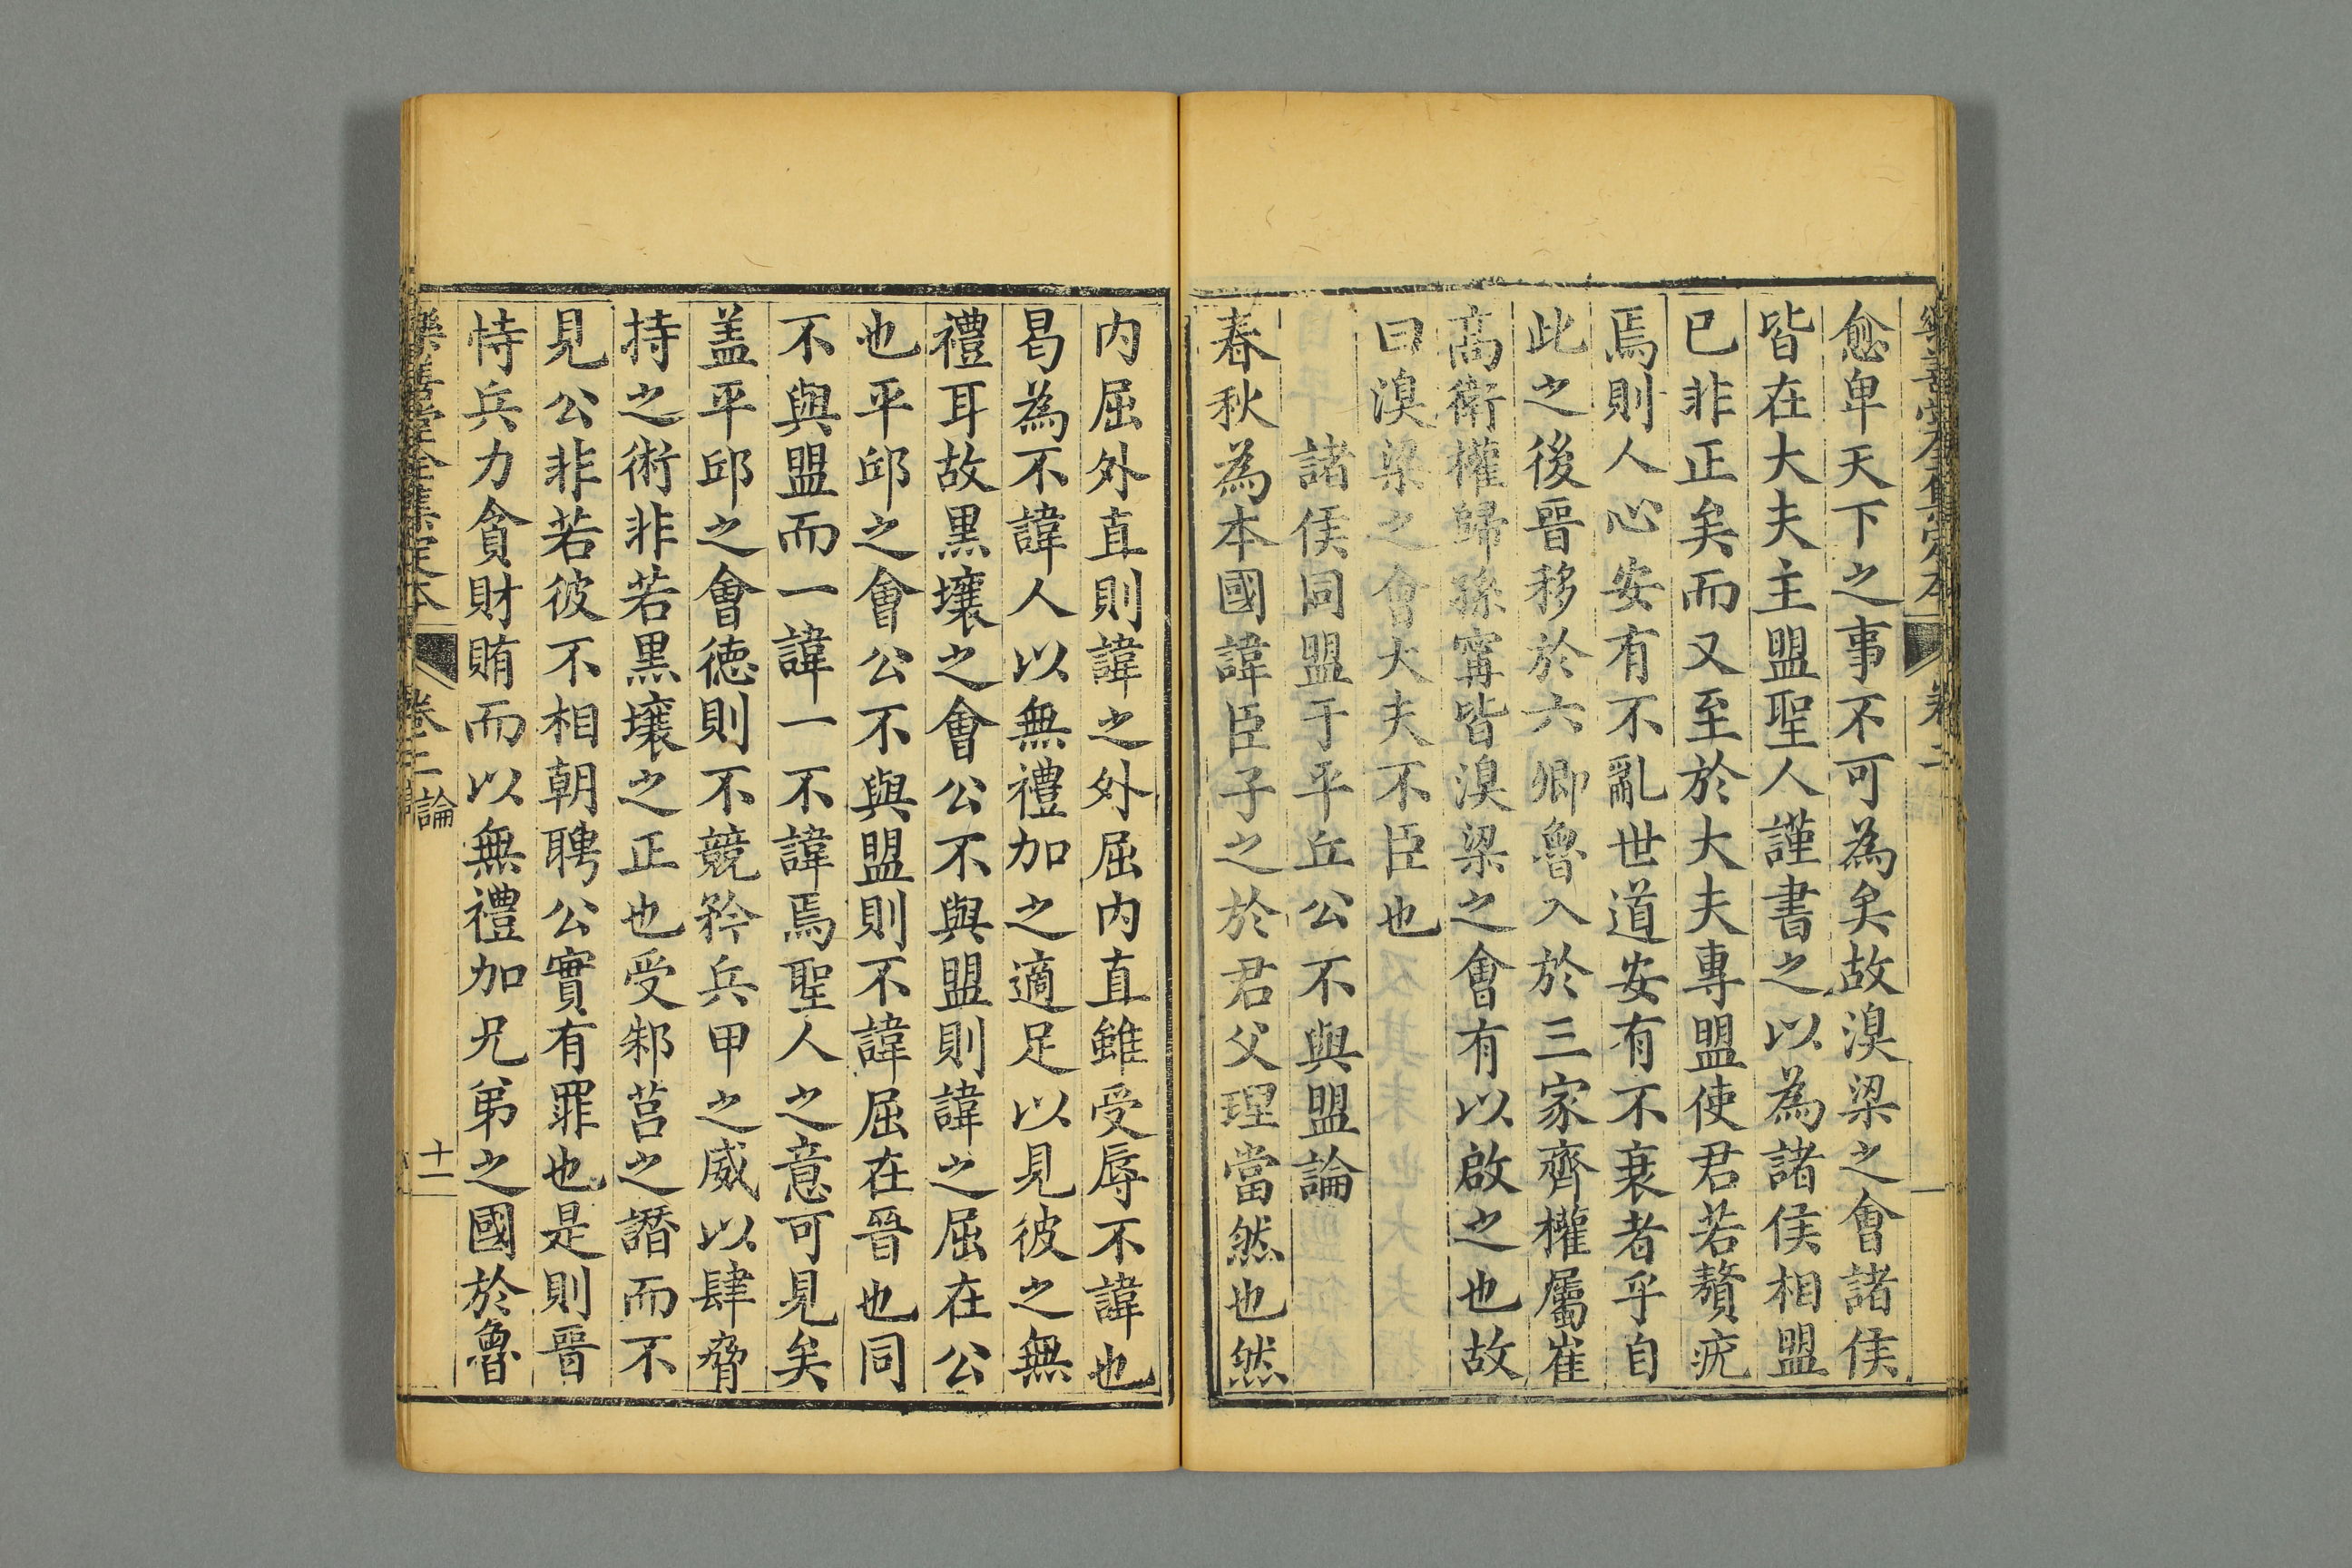 愈卑天下之事不可為矣故溴梁之會諸侯
皆在大夫主盟聖人謹書之以為諸侯相盟
已非正矣而又至於大夫專盟使君若贅疣
焉則人心安有不亂世道安有不衰者乎自
此之後晉移於六卿魯入於三家齊權屬崔
高衛權歸孫甯皆溴梁之會有以啟之也故
曰溴梁之會大夫不臣也
諸侯同盟于平丘公不與盟論
春秋為本國諱臣子之於君父理當然也然
内屈外直則諱之外屈内直雖受辱不諱也
曷為不諱人以無禮加之適足以見彼之無
禮耳故黒壤之會公不與盟則諱之屈在公
也平邱之會公不與盟則不諱屈在晉也同
不與盟而一諱一不諱焉聖人之意可見矣
盖平邱之會徳則不競矜兵甲之威以肆脅
持之術非若黒壤之正也受邾莒之譖而不
見公非若彼不相朝聘公實有罪也是則晉
恃兵力貪財賄而以無禮加兄弟之國於魯
樂善堂全集定本 卷二 論 十二